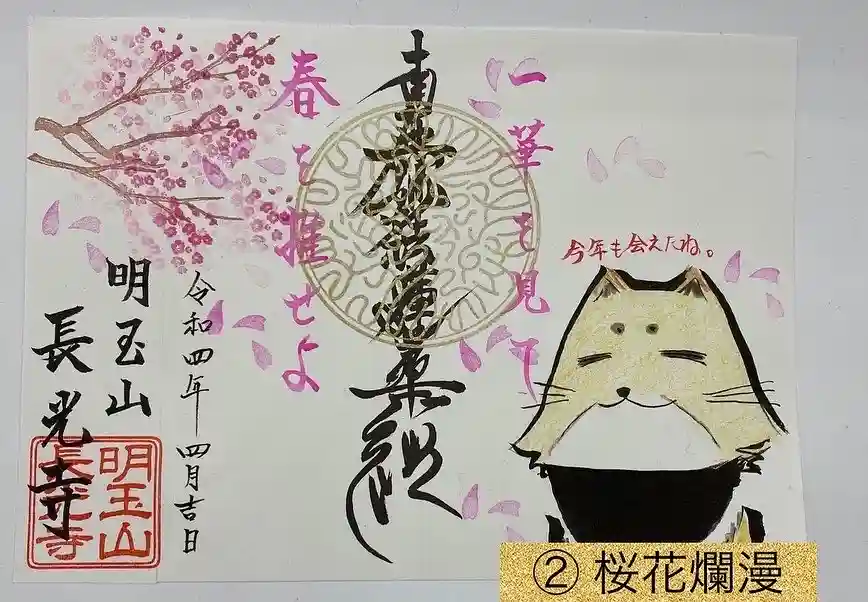 一華を見て
春を推せよ
今年も会えたね。
南無
令和四年 四月吉日
明玉山
長光寺
明玉山
長光寺
② 桜花爛漫